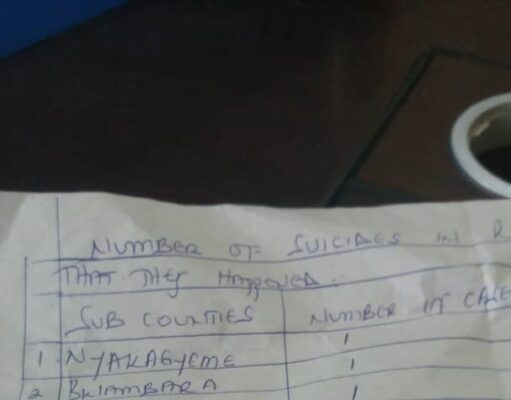 NUMBER OF SUICIDES IN R
THAT THEY HAPPENED:
SUB COUNTIES NUMBER OF CASE
1
1 NYAKAGYEME 1
2 BWAMBARA 1